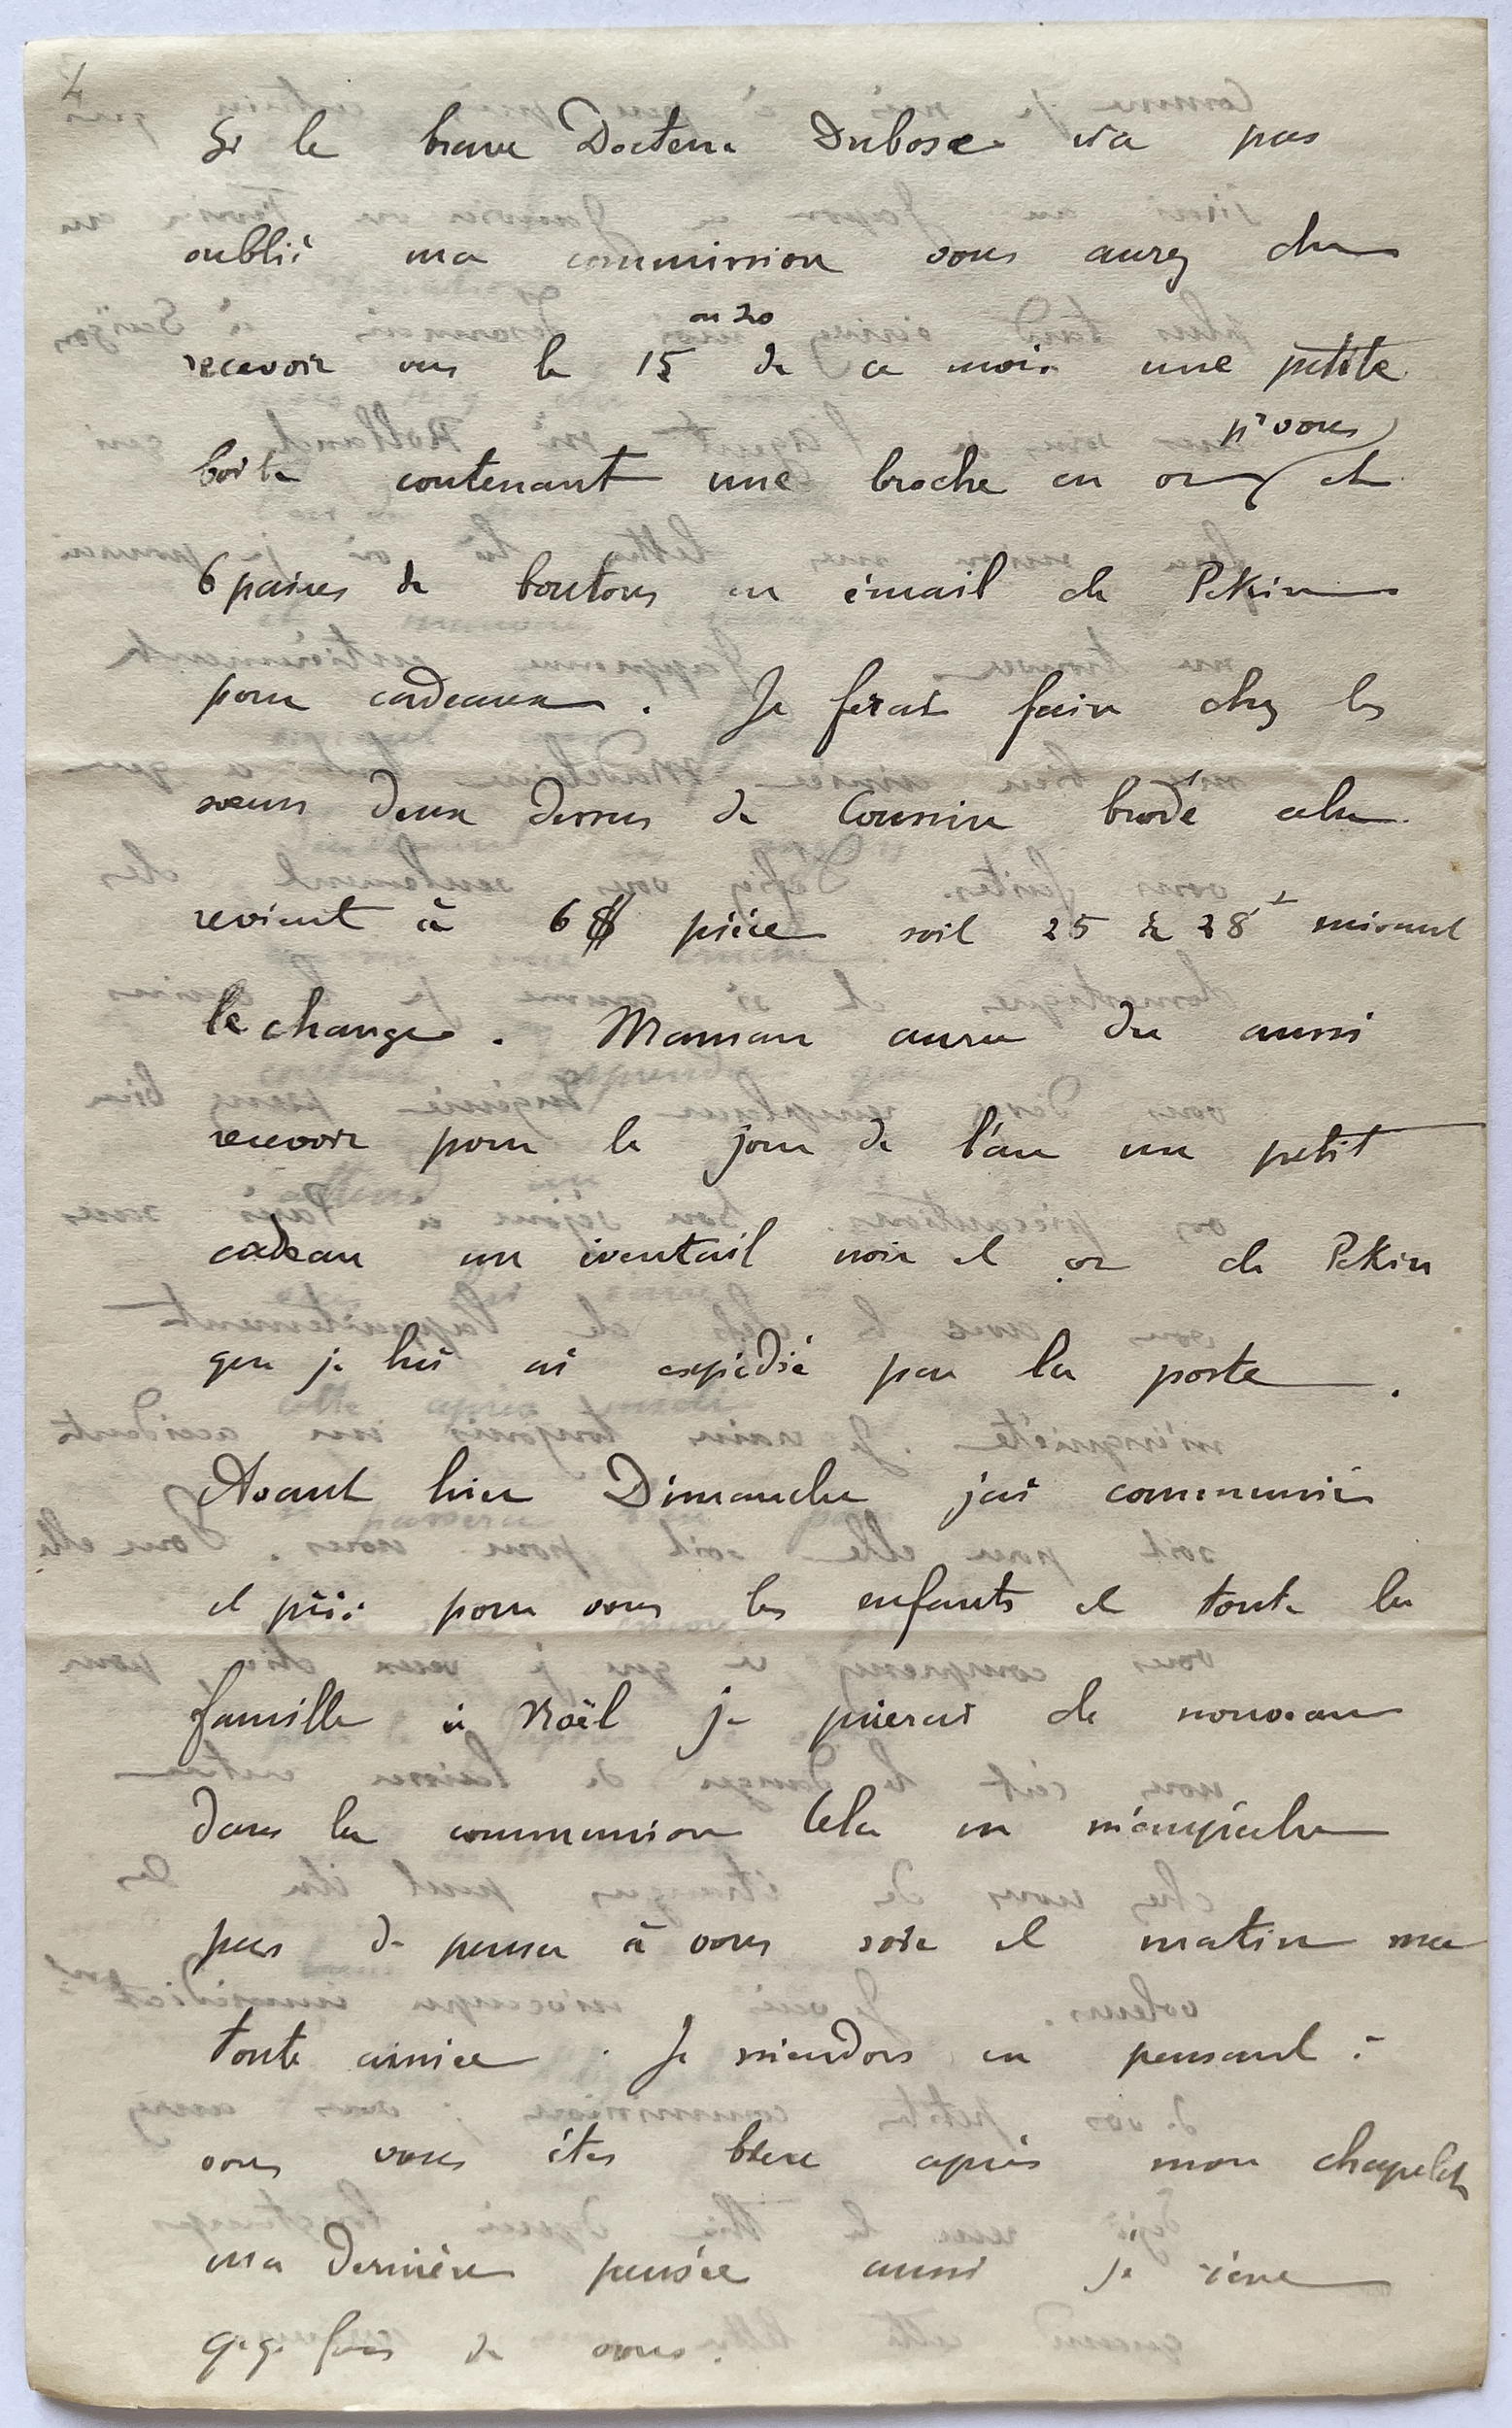 4
Si le brave Docteur Dubosc n'a pas
oublié ma commission vous aurez du
ou 20
recevoir vers le 15 de ce mois une petite
pr vous
boite contenant une broche en or et
6 paires de boutons en émail de Pekin
pour cadeaux. Je ferai faire chez les
sœurs deux dessus de Coussin brodé cela
revient à 6 $ pièce soit 25 à 28 f suivant
le change. Maman aura du aussi
recevoir pour le jour de l'an un petit
cadeau un éventail noir et or de Pekin
que je lui ai expédié par la poste.
Avant hier Dimanche j'ai communié
et prié pour vous les enfants et toute la
famille à Noël je prierai de nouveau
dans la communion Cela ne m'empêche
pas de penser à vous soir et matin ma
toute aimée. Je m'endors en pensant à
vous vous êtes bien après mon chapelet
ma dernière pensée aussi je rêve
q.q. fois de vous.